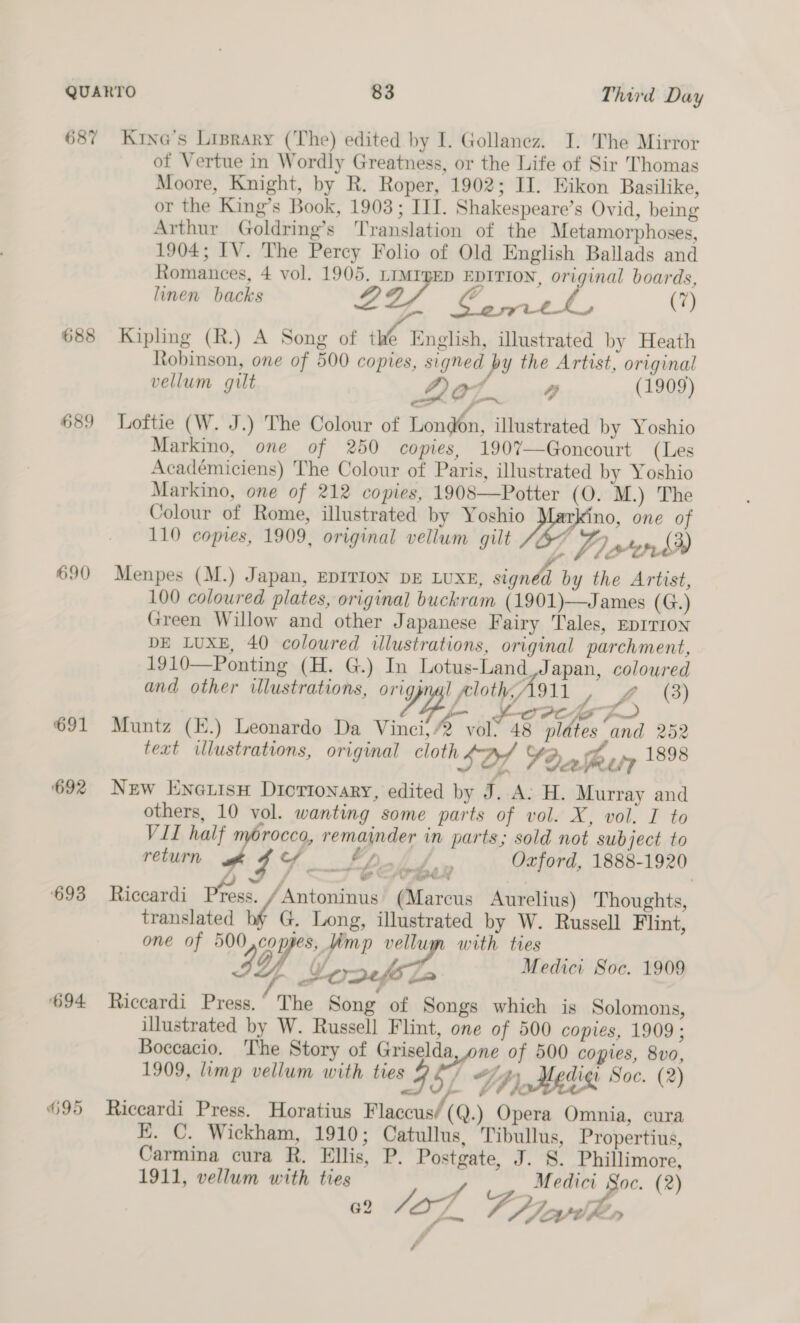 QUARTO 83 Third Day
687 King's Library (The) edited by I. Gollancz. I. The Mirror
of Vertue in Wordly Greatness, or the Life of Sir Thomas
Moore, Knight, by R. Roper, 1902; II. Eikon Basilike,
or the King's Book, 1903; III. Shakespeare's Ovid, being
Arthur Goldring's Translation of the Metamorphoses,
1904; IV. The Percy Folio of Old English Ballads and
Romances, 4 vol. 1905. LIMITED EDITION, original boards,
linen backs 22/ (7)
688 Kipling (R.) A Song of the English, illustrated by Heath
Robinson, one of 500 copies, signed by the Artist, original
vellum gilt 20/- (1909)
689 Loftie (W. J.) The Colour of London, illustrated by Yoshio
Markino, one of 250 copies, 1907—Goncourt (Les
Académiciens) The Colour of Paris, illustrated by Yoshio
Markino, one of 212 copies, 1908—Potter (O. M.) The
Colour of Rome, illustrated by Yoshio Markino, one of
110 copies, 1909, original vellum gilt (3)
690 Menpes (M.) Japan, EDITION DE LUXE, signed by the Artist,
100 coloured plates, original buckram (1901)—James (G.)
Green Willow and other Japanese Fairy Tales, EDITION
DE LUXE, 40 coloured illustrations, original parchment,
1910—Ponting (H. G.) In Lotus-Land, Japan, coloured
and other illustrations, original cloth, 1911 (3)
691 Muntz (E.) Leonardo Da Vinci, 2 vol. 48 plates and 252
text illustrations, original cloth 1898
692 New English Dictionary, edited by J. A. H. Murray and
others, 10 vol. wanting some parts of vol. X, vol. I to
VII half morocco, remainder in parts; sold not subject to
return Oxford, 1888-1920
693 Riccardi Press. Antoninus (Marcus Aurelius) Thoughts,
translated by G. Long, illustrated by W. Russell Flint,
one of 500 copies, limp vellum with ties
Medici Soc. 1909
694 Riccardi Press. The Song of Songs which is Solomons,
illustrated by W. Russell Flint, one of 500 copies, 1909;
Boccacio. The Story of Griselda, one of 500 copies, 8vo,
1909, limp vellum with ties Medici Soc. (2)
695 Riccardi Press. Horatius Flaccus (Q.) Opera Omnia, cura
E. C. Wickham, 1910; Catullus, Tibullus, Propertius,
Carmina cura R. Ellis, P. Postgate, J. S. Phillimore,
1911, vellum with ties Medici Soc. (2)
G2